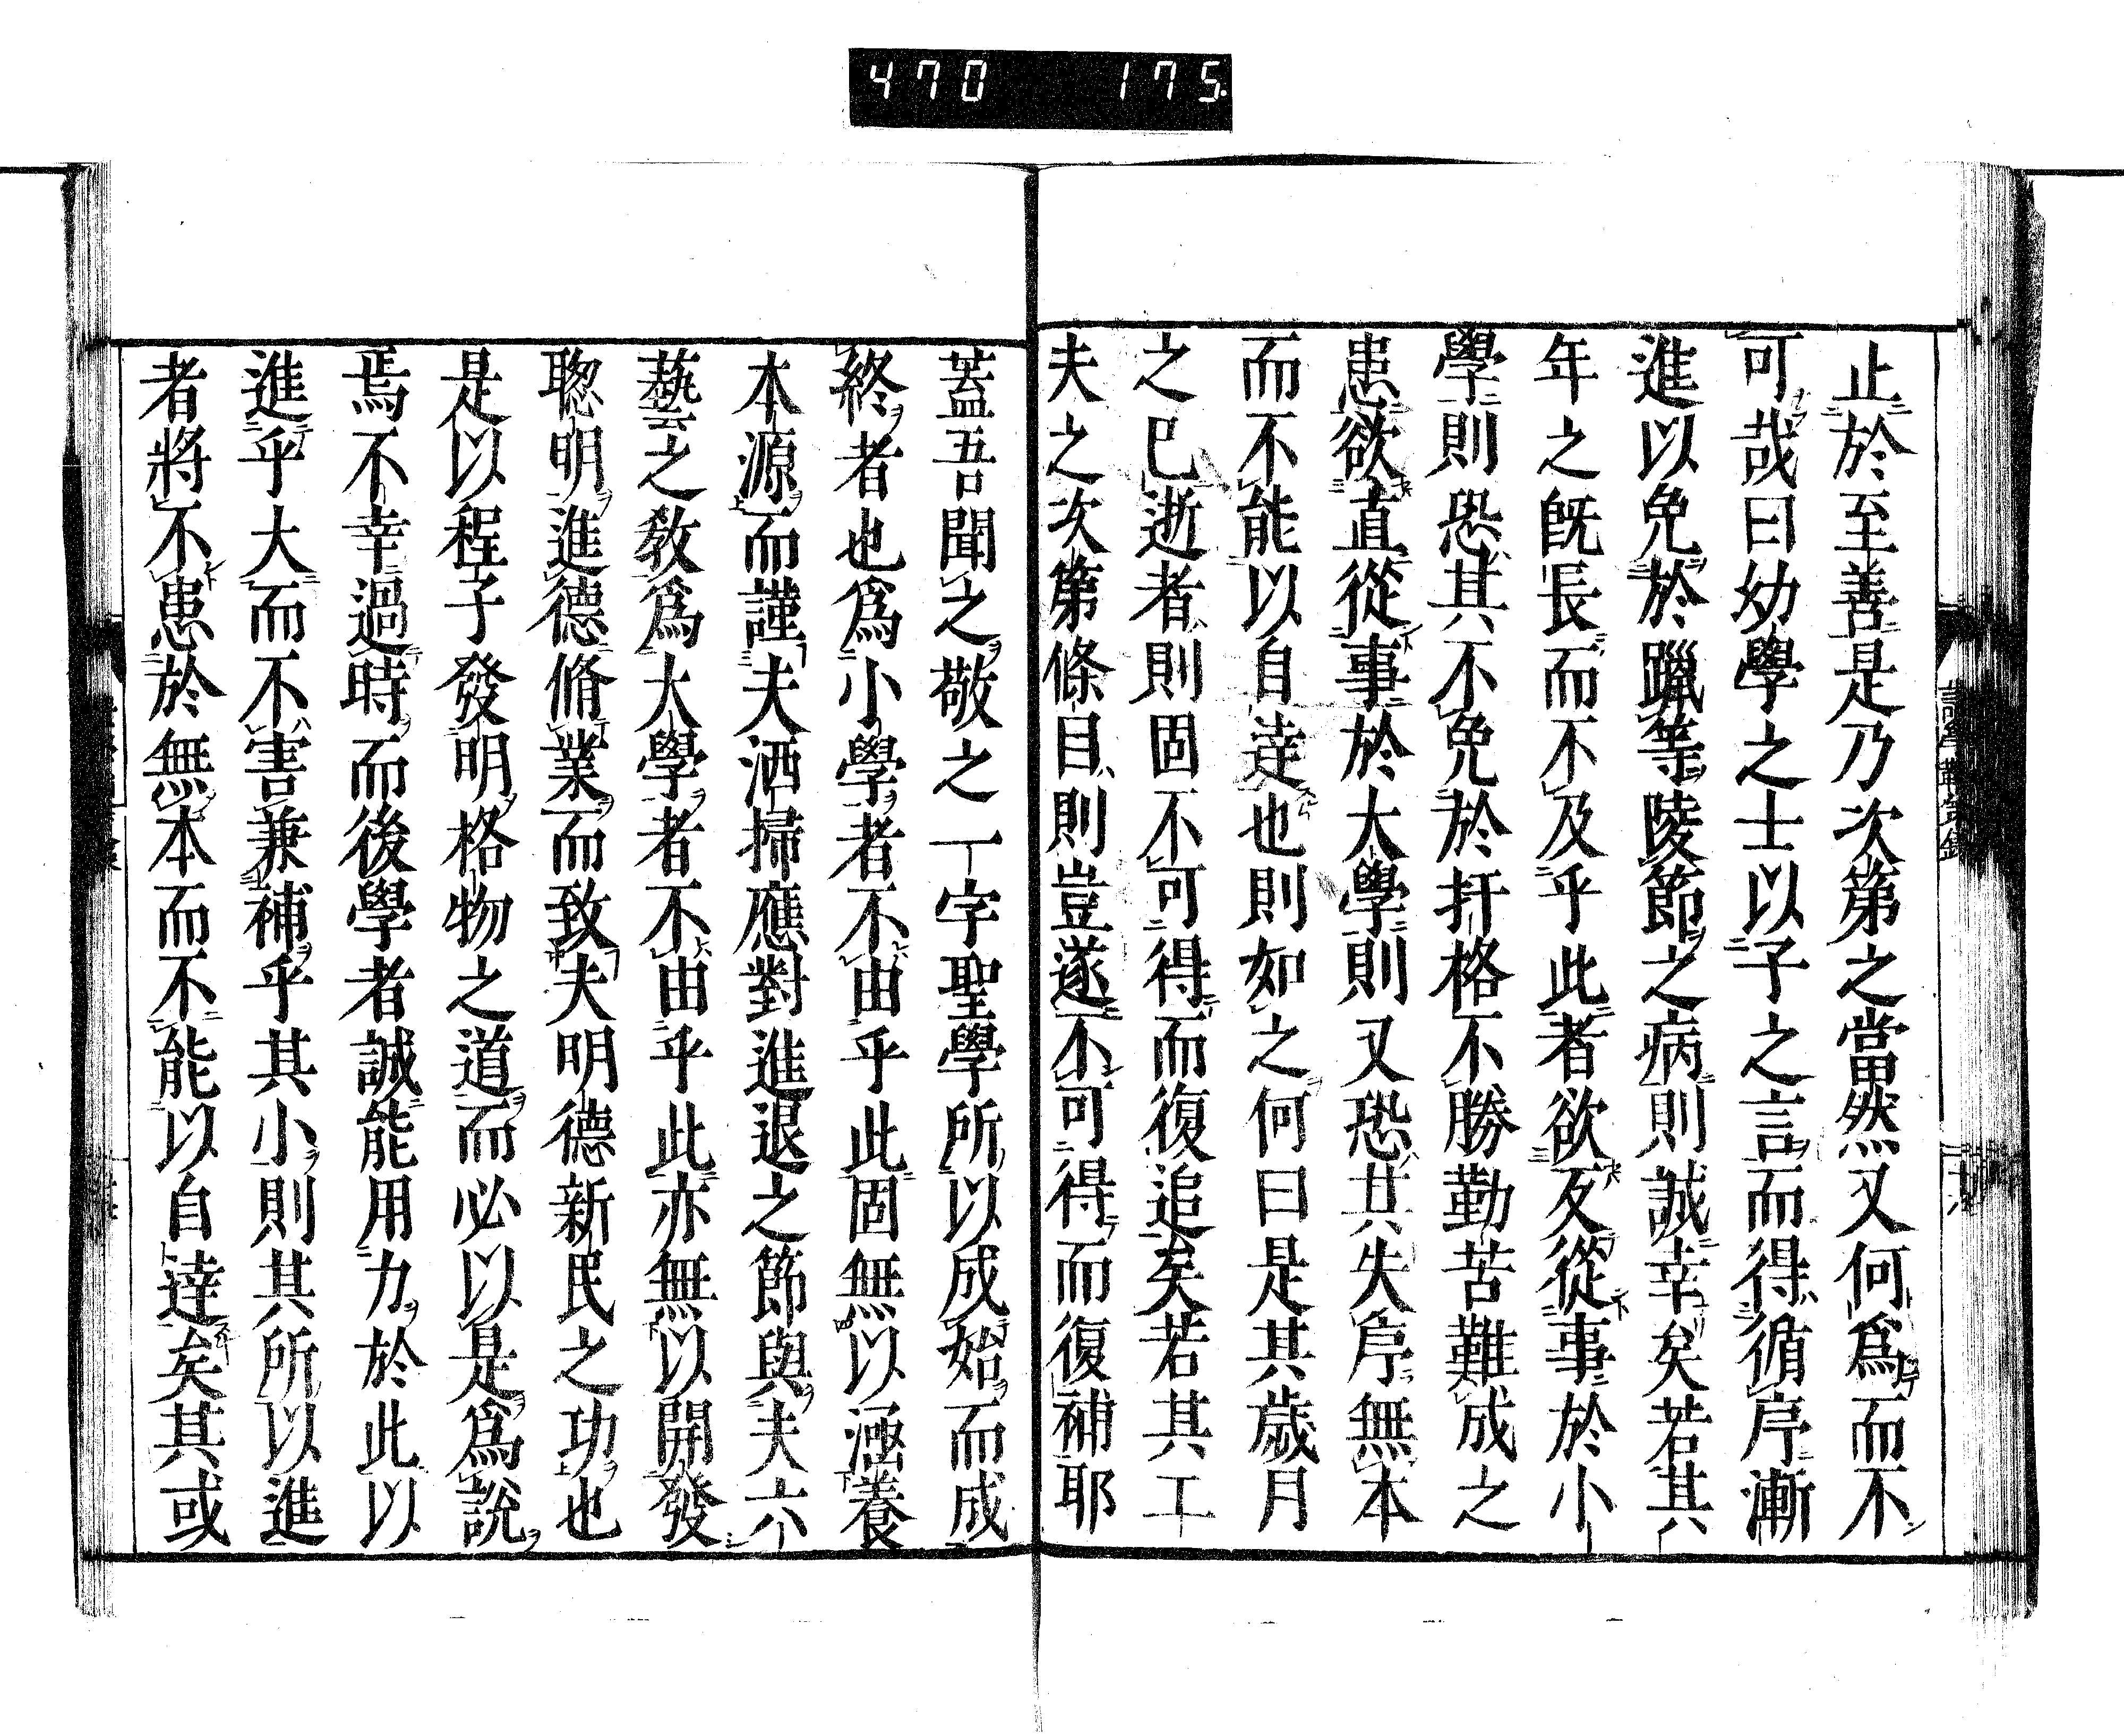 470 175
止於至善是乃次第之當然又何爲而不
可哉曰幼學之士以子之言而得循序漸
進以免於躐等陵節之病則誠幸矣若其
年之旣長而不及乎此者欲反從事於小
學則恐其不免於扞格不勝勤苦難成之
患欲直從事於大學則又恐其失序無本
而不能以自達也則如之何曰是其歲月
之已逝者則固不可得而復追矣若其工
夫之次第條目則豈遂不可得而復補耶
蓋吾聞之敬之一字聖學所以成始而成
終者也爲小學者不由乎此固無以涵養
本源而謹夫洒掃應對進退之節與夫六
藝之敎爲大學者不由乎此亦無以開發
聦明進德脩業而致夫明德新民之功也
是以程子發明格物之道而必以是爲說
焉不幸過時而後學者誠能用力於此以
進乎大而不害兼補乎其小則其所以進
者將不患於無本而不能以自達矣其或